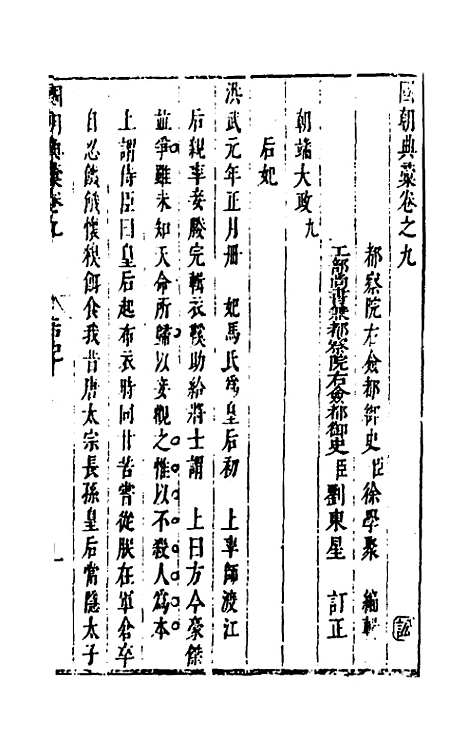 國朝典彙卷之九
都察院右僉都御史臣徐學聚 編輯
工部尚書兼都察院右僉都御史臣劉東星 訂正
朝端大政九
后妃
洪武元年正月冊 妃馬氏為皇后初 上率師渡江
后親率妾媵完輯衣鞋助給將士謂 上曰方今豪傑
並爭雖未知天命所歸以妾觀之惟以不殺人為本
上謂侍臣曰皇后起布衣時同甘苦嘗從朕在軍倉卒
自忍饑餓懷糗餌食我昔唐太宗長孫皇后當隱太子
國朝典彙卷九